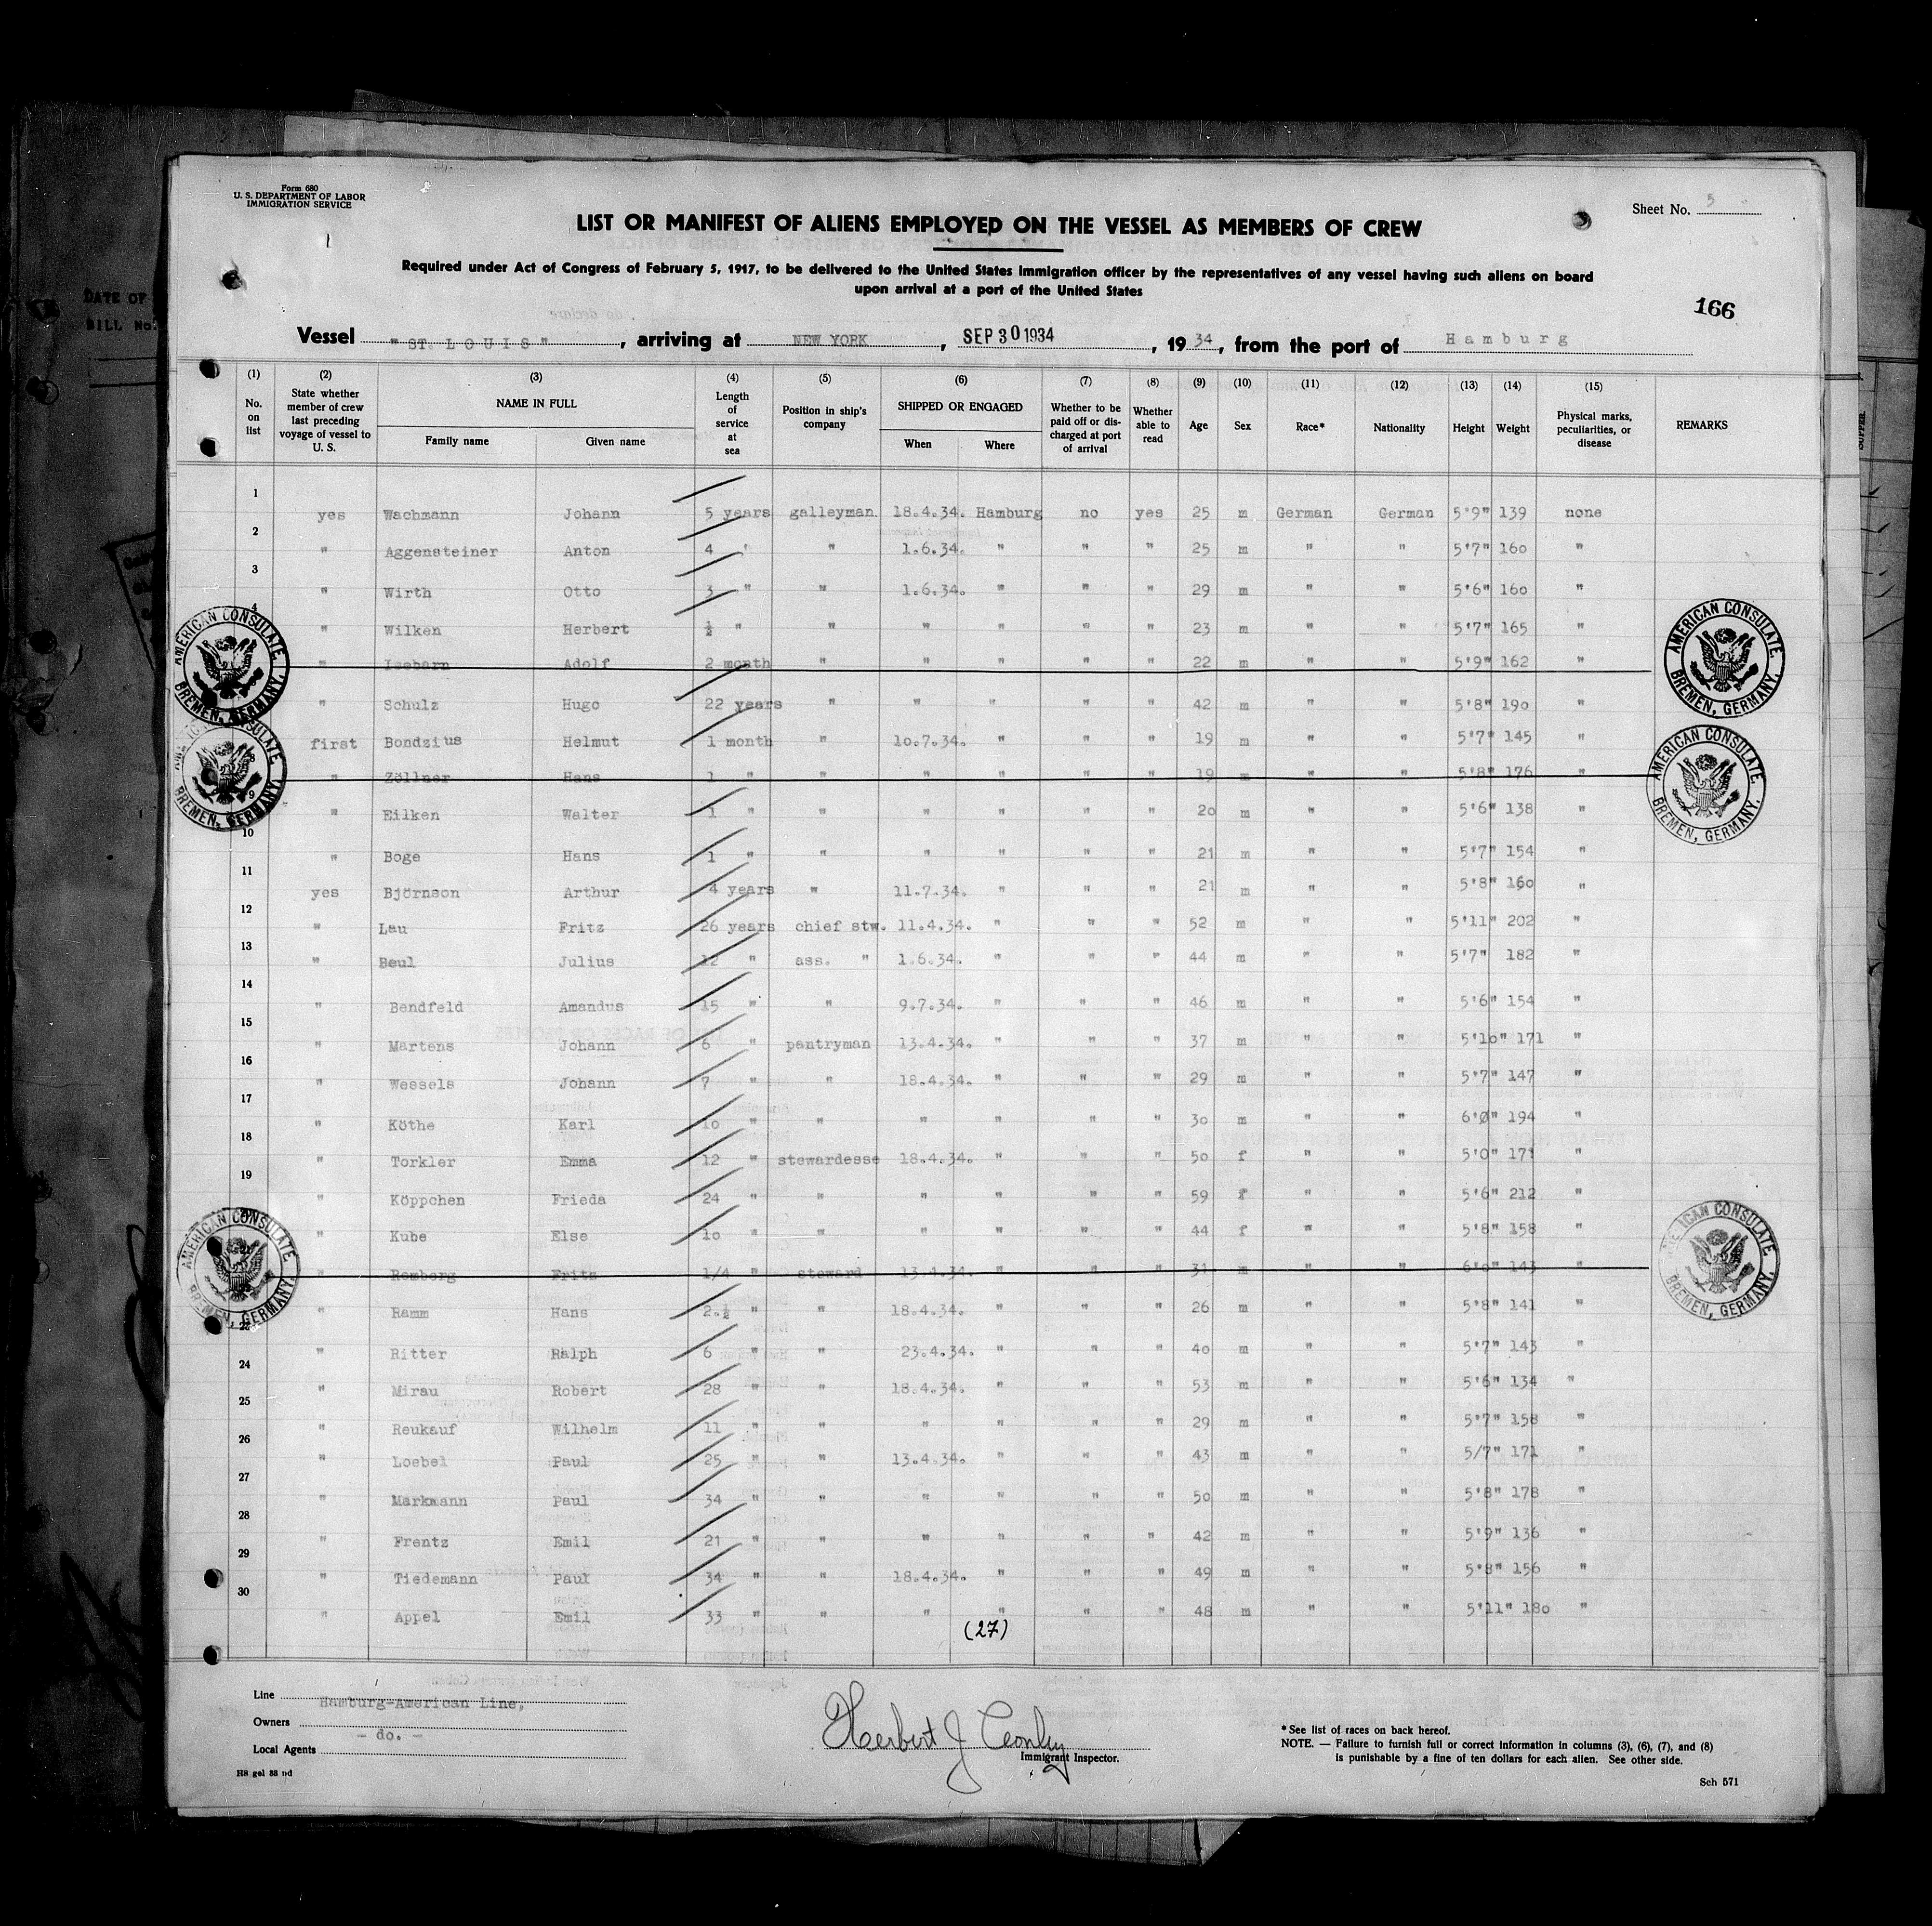 Form 680
U. S. DEPARTMENT OF LABOR
IMMIGRATION SERVICE
Sheet No. 5
LIST OR MANIFEST OF ALIENS EMPLOYED ON THE VESSEL AS MEMBERS OF CREW
Required under Act of Congress of February 5, 1917, to be delivered to the United States immigration officer by the representatives of any vessel having such aliens on board
upon arrival at a port of the United States
166
Vessel "ST. LOUIS", arriving at NEW YORK, SEP 30 1934, 1934, from the port of Hamburg
DATE OF
BILL No.
(1) No. on list (2) State whether member of crew last preceding voyage of vessel to U. S. (3) NAME IN FULL Family name Given name (4) Length of service at sea (5) Position in ship's company (6) SHIPPED OR ENGAGED When Where (7) Whether to be paid off or discharged at port of arrival (8) Whether able to read (9) Age (10) Sex (11) Race* (12) Nationality (13) Height (14) Weight (15) Physical marks, peculiarities, or disease REMARKS
1 yes Wachmann Johann 5 years galleyman 18.4.34. Hamburg no yes 25 m German German 5'9" 139 none
2 " Aggensteiner Anton 4 " " 1.6.34. " " " 25 m " " 5'7" 160 "
3 " Wirth Otto 3 " " 1.6.34. " " " 29 m " " 5'6" 160 "
4 " Wilken Herbert ½ " " " " " " 23 m " " 5'7" 165 "
" Adolf 2 month " " " " " 22 m " " 5'9" 162 "
" Schulz Hugo 22 years " " " " " 42 m " " 5'8" 190 "
first Bondzius Helmut 1 month " 10.7.34. " " " 19 m " " 5'7" 145 "
8 " Zöllner Hans 1 " " " " " " 19 m " " 5'8" 176 "
9 " Eilken Walter 1 " " " " " " 20 m " " 5'6" 138 "
10 " Boge Hans 1 " " " " " " 21 m " " 5'7" 154 "
11 yes Björnson Arthur 4 years " 11.7.34. " " " 21 m " " 5'8" 160 "
12 " Lau Fritz 26 years chief stw. 11.4.34. " " " 52 m " " 5'11" 202 "
13 " Beul Julius 12 " ass. " 1.6.34. " " " 44 m " " 5'7" 182 "
14 " Bendfeld Amandus 15 " " 9.7.34. " " " 46 m " " 5'6" 154 "
15 " Martens Johann 6 " pantryman 13.4.34. " " " 37 m " " 5'10" 171 "
16 " Wessels Johann 7 " " 18.4.34. " " " 29 m " " 5'7" 147 "
17 " Köthe Karl 10 " " " " " " 30 m " " 6'0" 194 "
18 " Torkler Emma 12 " stewardesse 18.4.34. " " " 50 f " " 5'0" 171 "
19 " Köppchen Frieda 24 " " " " " " 59 f " " 5'6" 212 "
" Kube Else 10 " " " " " " 44 f " " 5'8" 158 "
21 " Romberg Fritz 1/4 " steward 13.4.34. " " " 31 m " " 6'0" 143 "
" Ramm Hans 2.½ " " 18.4.34. " " " 26 m " " 5'8" 141 "
23 " Ritter Ralph 6 " " 23.4.34. " " " 40 m " " 5'7" 143 "
24 " Mirau Robert 28 " " 18.4.34. " " " 53 m " " 5'6" 134 "
25 " Reukauf Wilhelm 11 " " " " " " 29 m " " 5'7" 158 "
26 " Loebel Paul 25 " " 13.4.34. " " " 43 m " " 5/7" 171 "
27 " Markmann Paul 34 " " " " " " 50 m " " 5'8" 178 "
28 " Frentz Emil 21 " " " " " " 42 m " " 5'9" 136 "
29 " Tiedemann Paul 34 " " 18.4.34. " " " 49 m " " 5'8" 156 "
30 " Appel Emil 33 " " " " " " 48 m " " 5'11" 180 "
(27)
AMERICAN CONSULATE, BREMEN, GERMANY.
AMERICAN CONSULATE, BREMEN, GERMANY.
AMERICAN CONSULATE, BREMEN, GERMANY.
AMERICAN CONSULATE, BREMEN, GERMANY.
AMERICAN CONSULATE, BREMEN, GERMANY.
AMERICAN CONSULATE, BREMEN, GERMANY.
Line Hamburg-American Line,
Owners - do. -
Local Agents
H8 gel 33 nd
Herbert J Conley
Immigrant Inspector.
*See list of races on back hereof.
NOTE. — Failure to furnish full or correct information in columns (3), (6), (7), and (8)
is punishable by a fine of ten dollars for each alien. See other side.
Sch 571